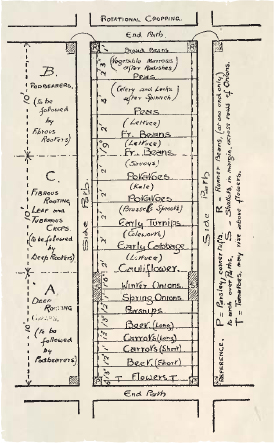 ROTATIONAL CROPPING.
End Path
B
PODBEARERS,
(to be
followed
by
Fibrous
Rooters)
C
FIBROUS
ROOTING,
LEAF AND
TUBEROUS
CROPS
(to be followed
by
Deep Rooters)
A
DEEP
ROOTING
(to be
followed
by
Podbearers)
Side Path.
Broad Beans
(Vegetable Marrows)
after Radishes
Peas
(Celery and Leeks)
after Spinach
Peas
(Lettuce)
Fr. Beans
(Lettuce)
Fr. Beans
(Savoys)
Potatoes
(Kale)
Potatoes
(Brussels Sprouts)
Early Turnips
(Coleworts)
Early Cabbage
(Lettuce)
Cauliflower
Winter Onions.
Spring Onions
Parsnips
Beet. (Long)
Carrots (Long)
Carrots (Short)
Beet. (Short)
T Flowers T
Side Path
REFERENCE. P = Parsley, corner tufts. R = Runner Beans, (at one end only)
to arch over Paths. S = Shallots, in margin, across rows of Onions.
T = Tomatoes, may rise above flowers.
End Path